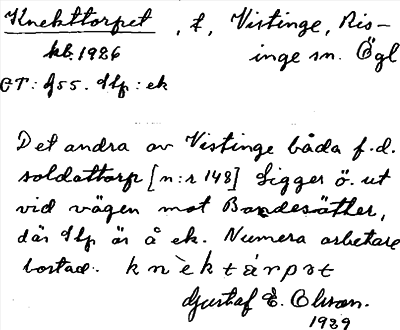 Knekttorpet, t, Vistinge, Ris-
kb. 1926 inge sn. Ögl
GT: J55. Slp: ek
Det andra av Vistinge båda f.d.
soldattorp [n:r 148] Ligger ö. ut
vid vägen mot Bondesätter,
där Slp är å ek. Numera arbetare
bostad. knèktárpət
Gustaf E. Olsson.
1929